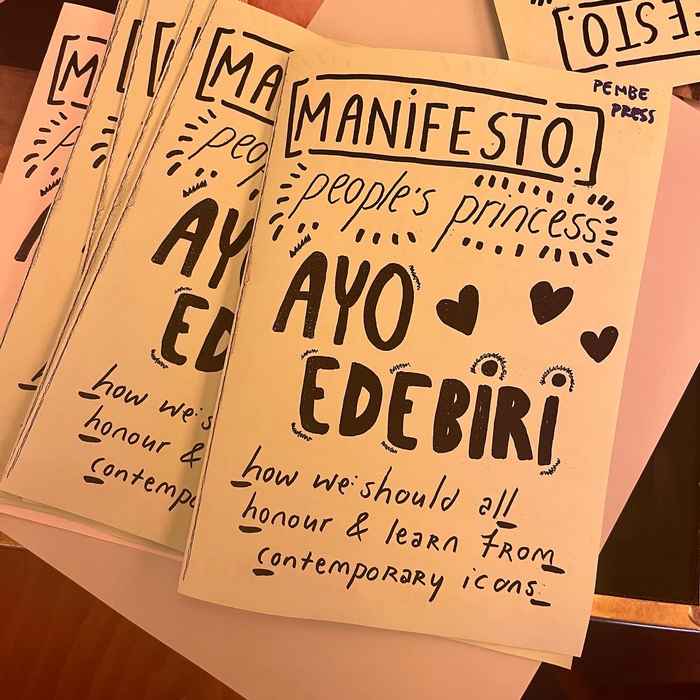 MANIFESTO.
PEMBE
PRESS
people's princess
AYO
EDEBIRI
how we should all
honour & learn from
contemporary icons
MANIFESTO.
MA
peo
AY
ED
how we s
honour &
contempo
M